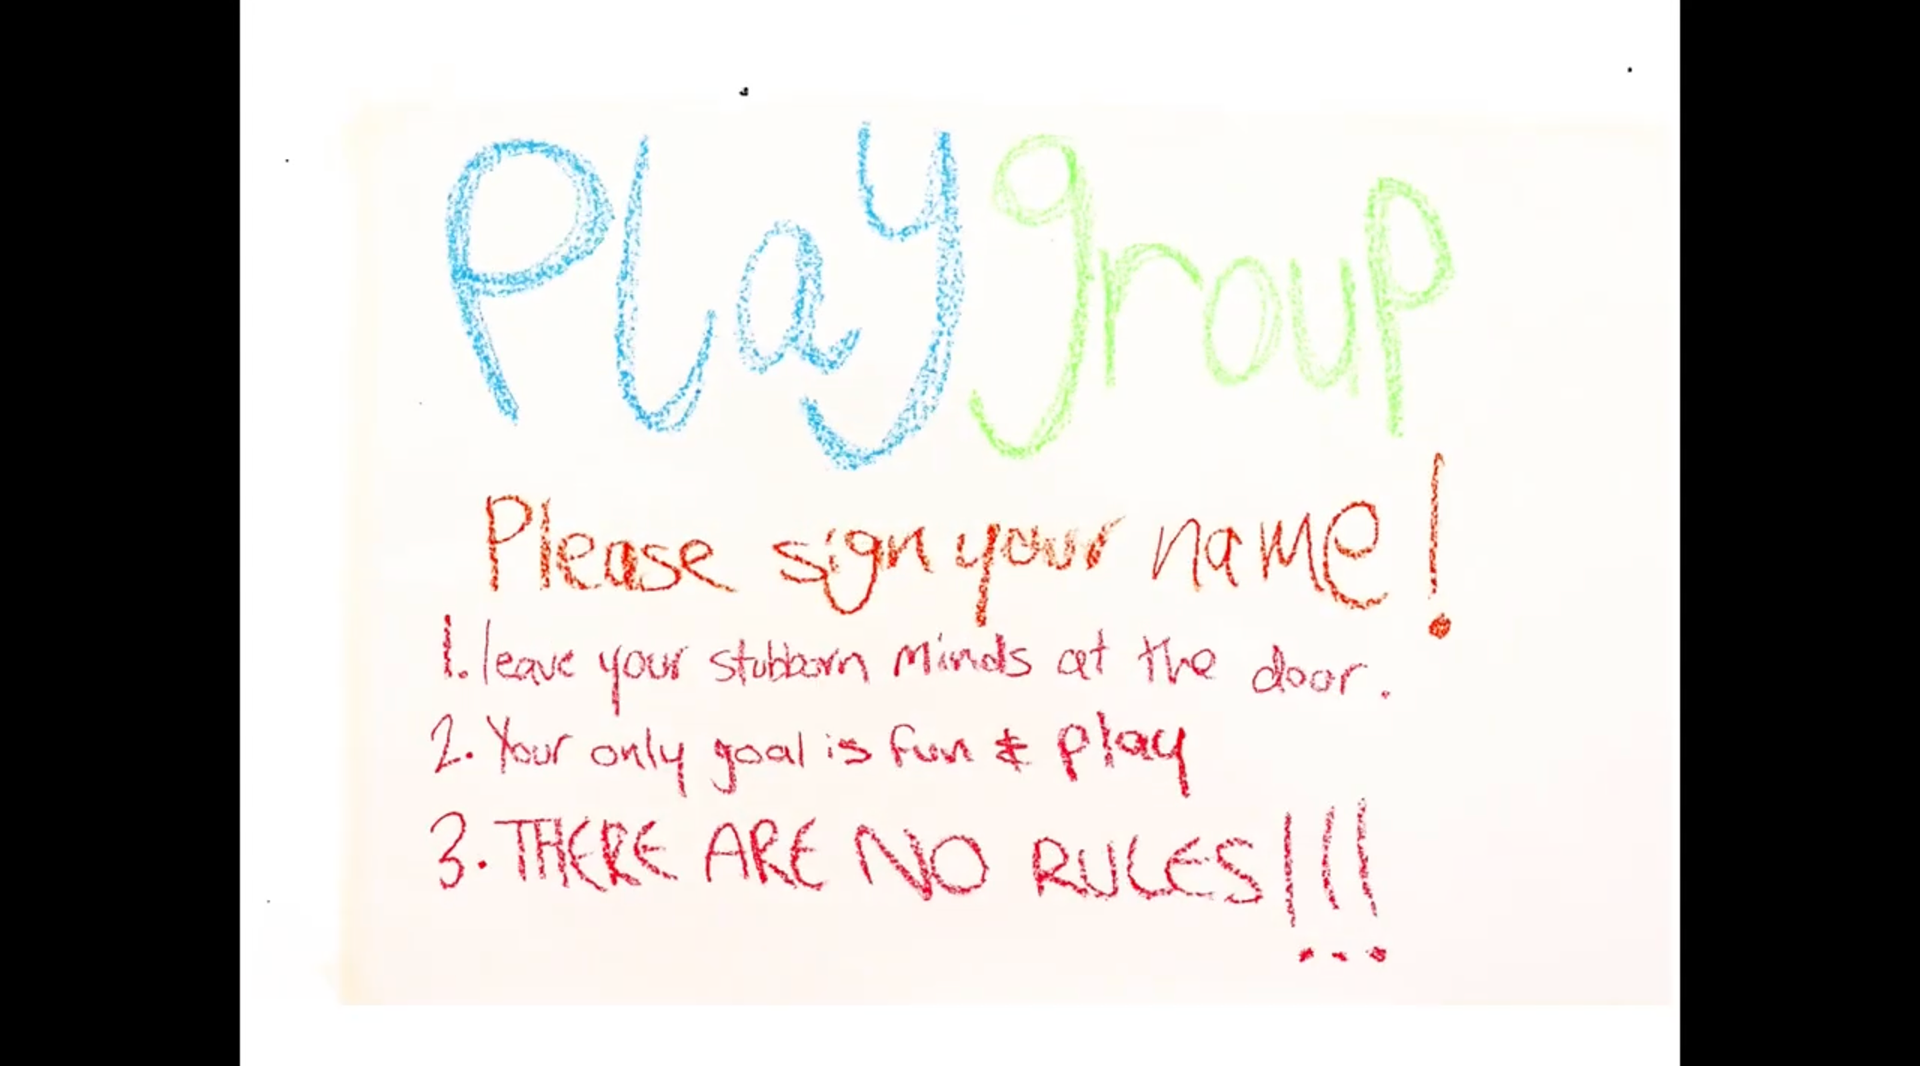 Play group
Please sign your name!
1. leave your stubborn minds at the door.
2. Your only goal is fun & play
3. THERE ARE NO RULES!!!